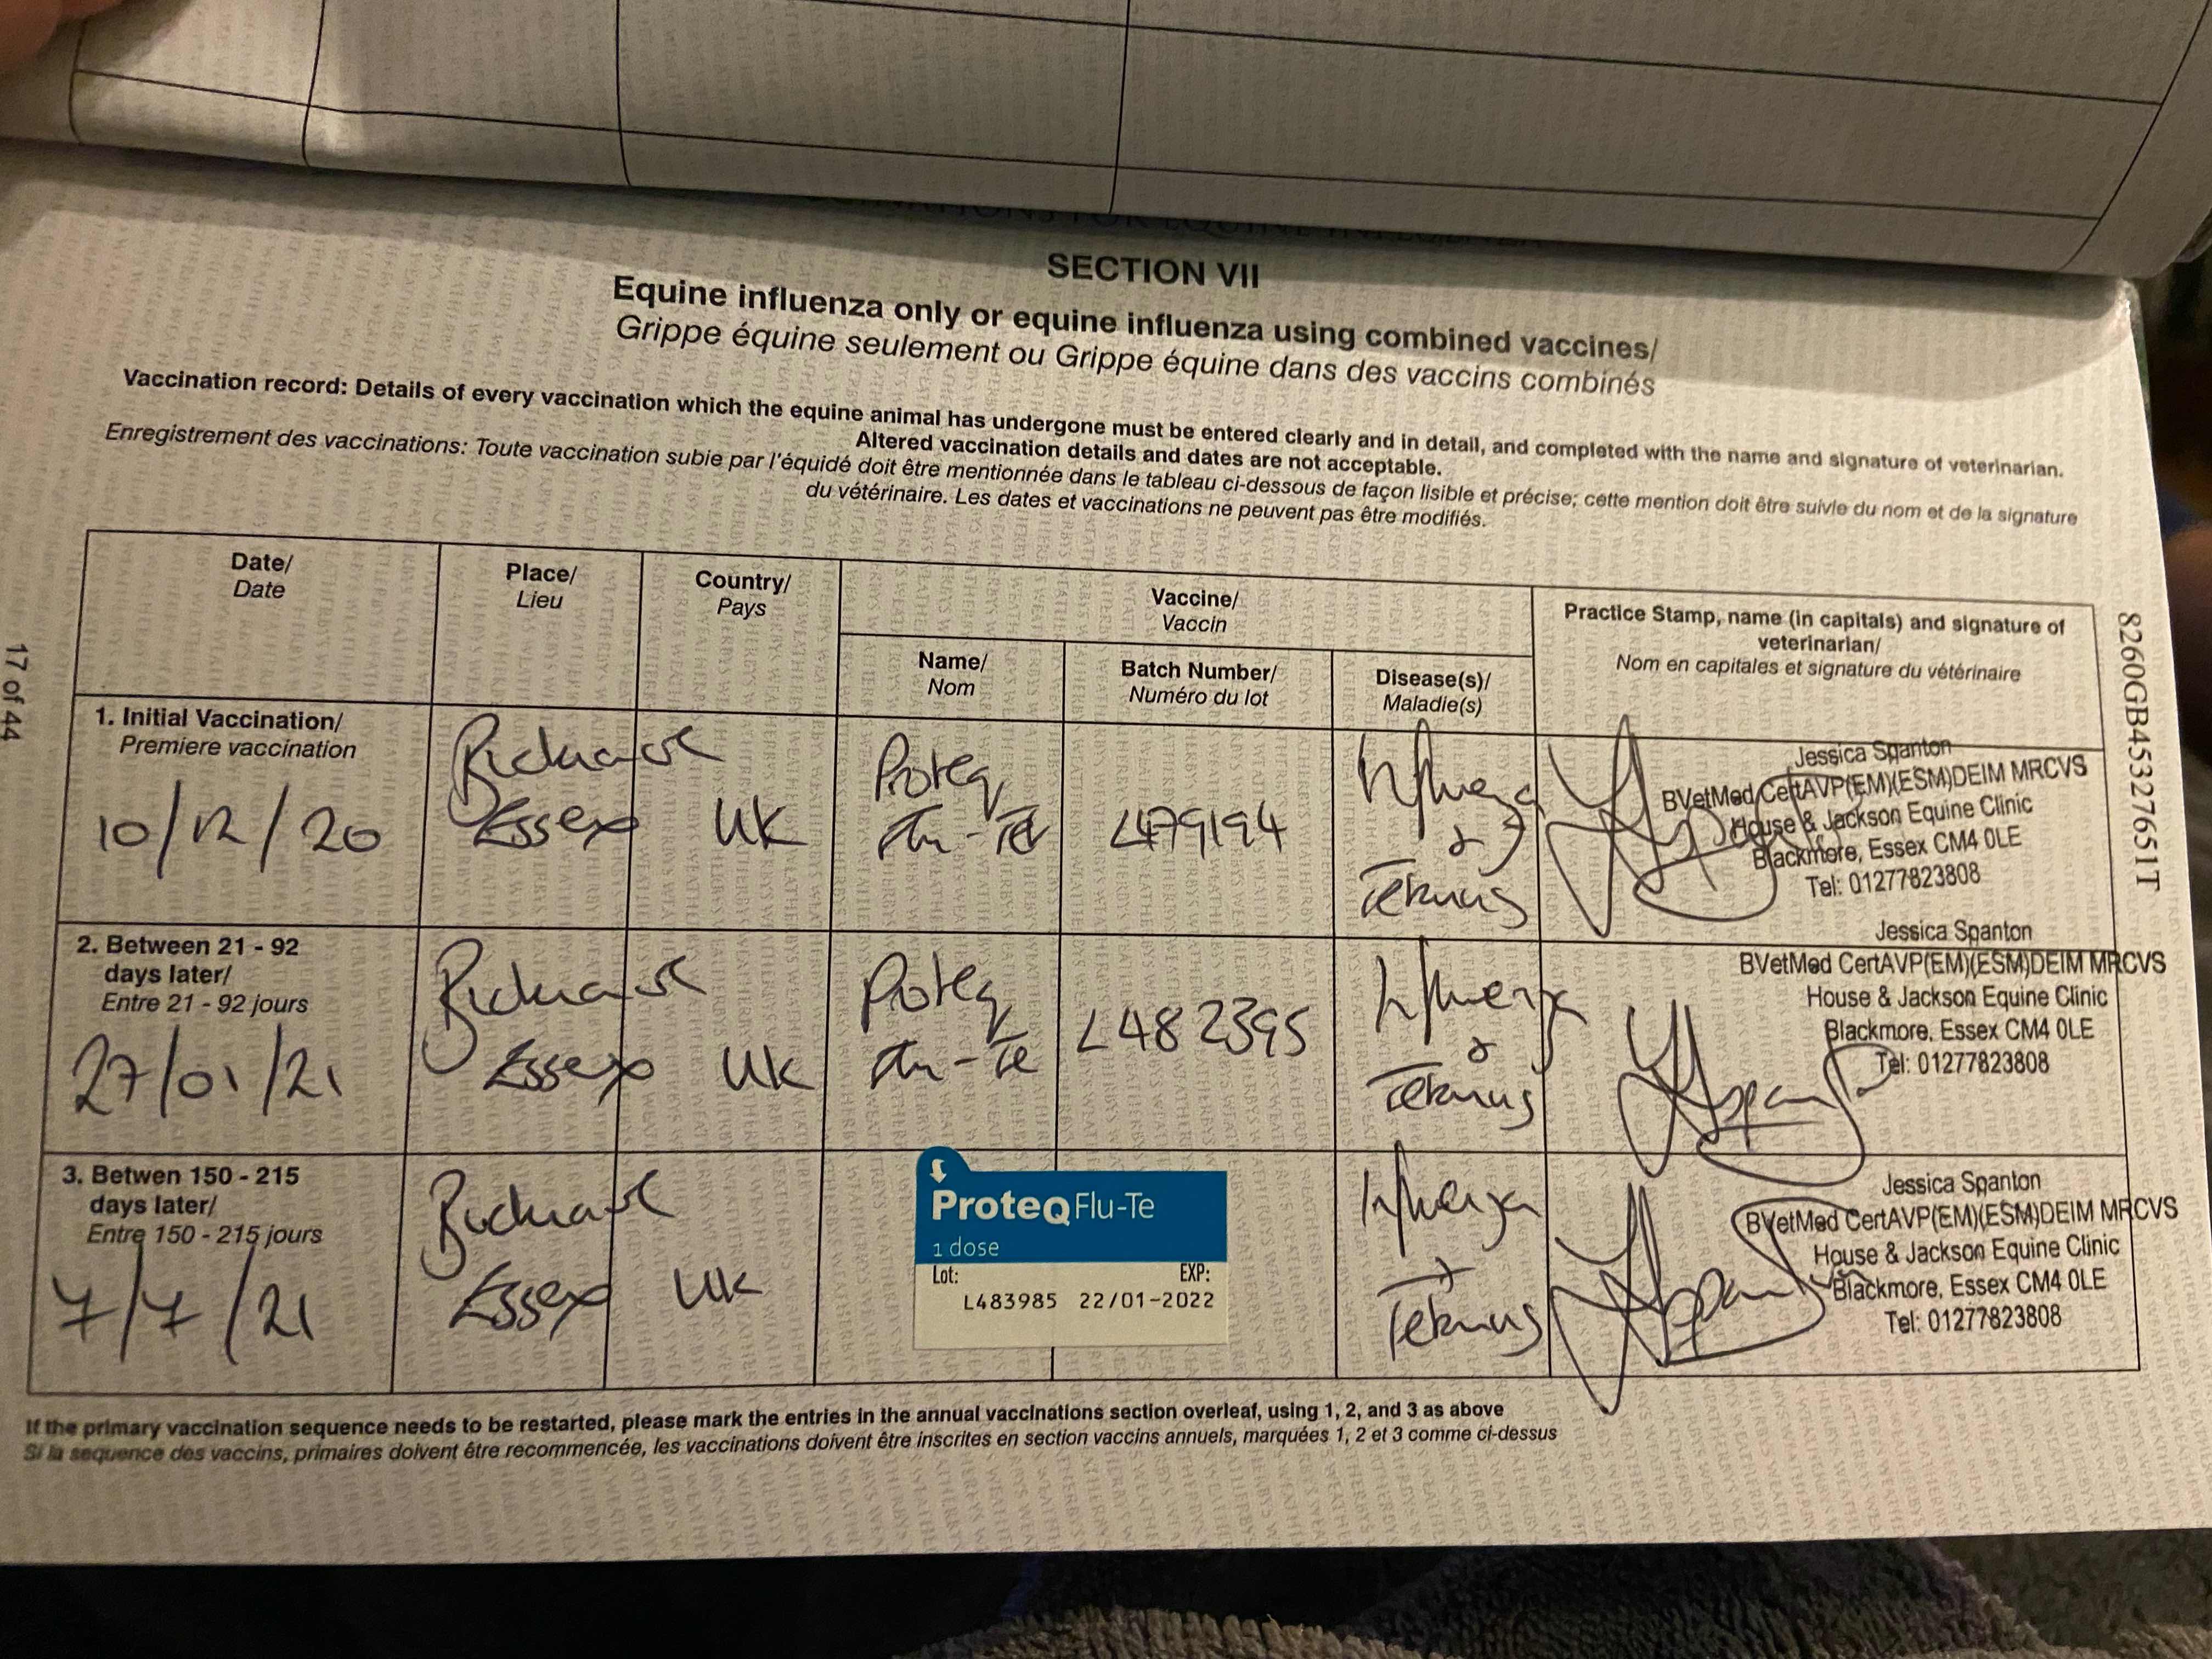 SECTION VII
Equine influenza only or equine influenza using combined vaccines/
Grippe équine seulement ou Grippe équine dans des vaccins combinés
Vaccination record: Details of every vaccination which the equine animal has undergone must be entered clearly and in detail, and completed with the name and signature of veterinarian.
Altered vaccination details and dates are not acceptable.
Enregistrement des vaccinations: Toute vaccination subie par l'équidé doit être mentionnée dans le tableau ci-dessous de façon lisible et précise; cette mention doit être suivie du nom et de la signature
du vétérinaire. Les dates et vaccinations ne peuvent pas être modifiés.
Date/
Date
Place/
Lieu
Country/
Pays
Vaccine/
Vaccin
Name/
Nom
Batch Number/
Numéro du lot
Disease(s)/
Maladie(s)
Practice Stamp, name (in capitals) and signature of
veterinarian/
Nom en capitales et signature du vétérinaire
1. Initial Vaccination/
Premiere vaccination
10/12/20
Essex
UK
Proteq
Flu-Te
L479194
Influenza
&
Tetanus
Jessica Spanton
BVetMed CertAVP(EM)(ESM)DEIM MRCVS
House & Jackson Equine Clinic
Blackmore, Essex CM4 0LE
Tel: 01277823808
2. Between 21 - 92
days later/
Entre 21 - 92 jours
27/01/21
Essex
UK
Proteq
Flu-Te
L482395
Influenza
&
Tetanus
Jessica Spanton
BVetMed CertAVP(EM)(ESM)DEIM MRCVS
House & Jackson Equine Clinic
Blackmore, Essex CM4 0LE
Tel: 01277823808
3. Betwen 150 - 215
days later/
Entre 150 - 215 jours
7/7/21
Essex
UK
ProteqFlu-Te
1 dose
Lot: EXP:
L483985 22/01-2022
Influenza
+
Tetanus
Jessica Spanton
BVetMed CertAVP(EM)(ESM)DEIM MRCVS
House & Jackson Equine Clinic
Blackmore, Essex CM4 0LE
Tel: 01277823808
If the primary vaccination sequence needs to be restarted, please mark the entries in the annual vaccinations section overleaf, using 1, 2, and 3 as above
Si la sequence des vaccins, primaires doivent être recommencée, les vaccinations doivent être inscrites en section vaccins annuels, marquées 1, 2 et 3 comme ci-dessus
17 of 44
8260GB45327651T